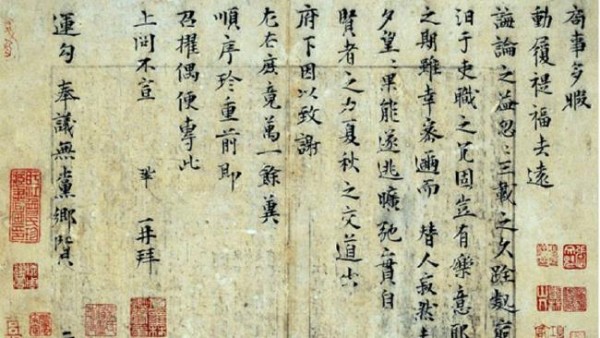 局事多暇
動履禔福去遠
誨論之益忽〻三載之久跧處窮
汩于吏職之冗固豈有樂意耶
之期雖幸密邇而替人寂然
夕望〻果能遂逃曠弛實自
賢者之力夏秋之交道出
府下因以致謝
左右庶竟萬一餘冀
順序珍重前即
召擢偶便專此
上問不宣 鞏 再拜
運勾 奉議無黨鄉賢 二